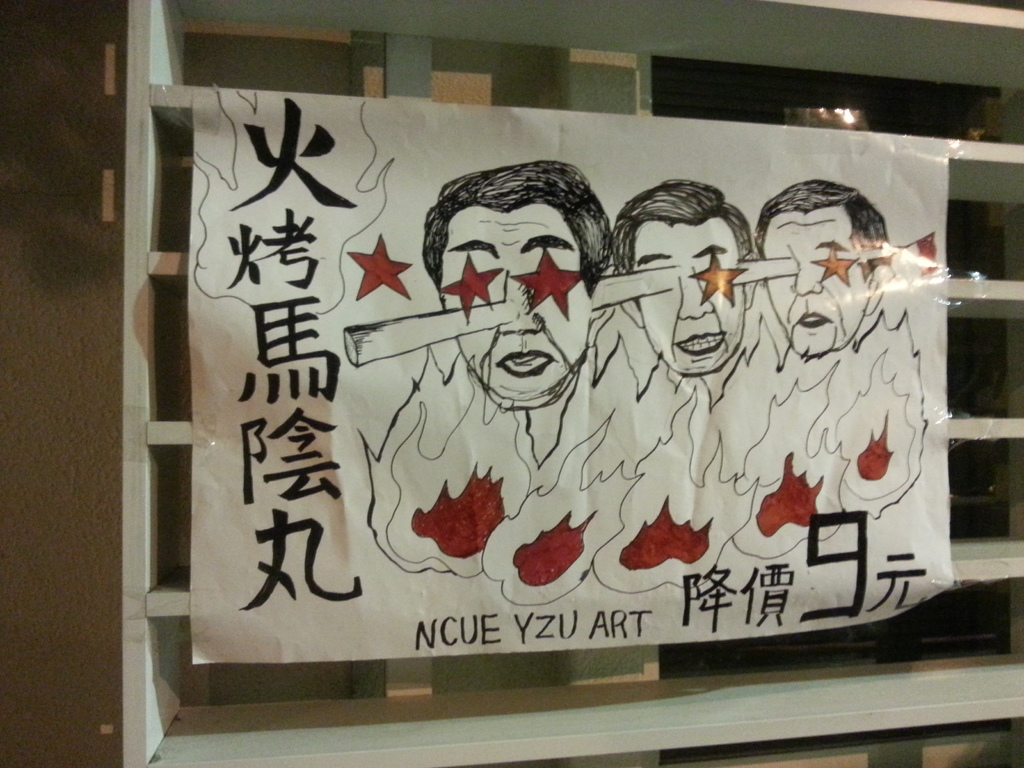 火烤馬陰丸
NCUE YZU ART
降價9元